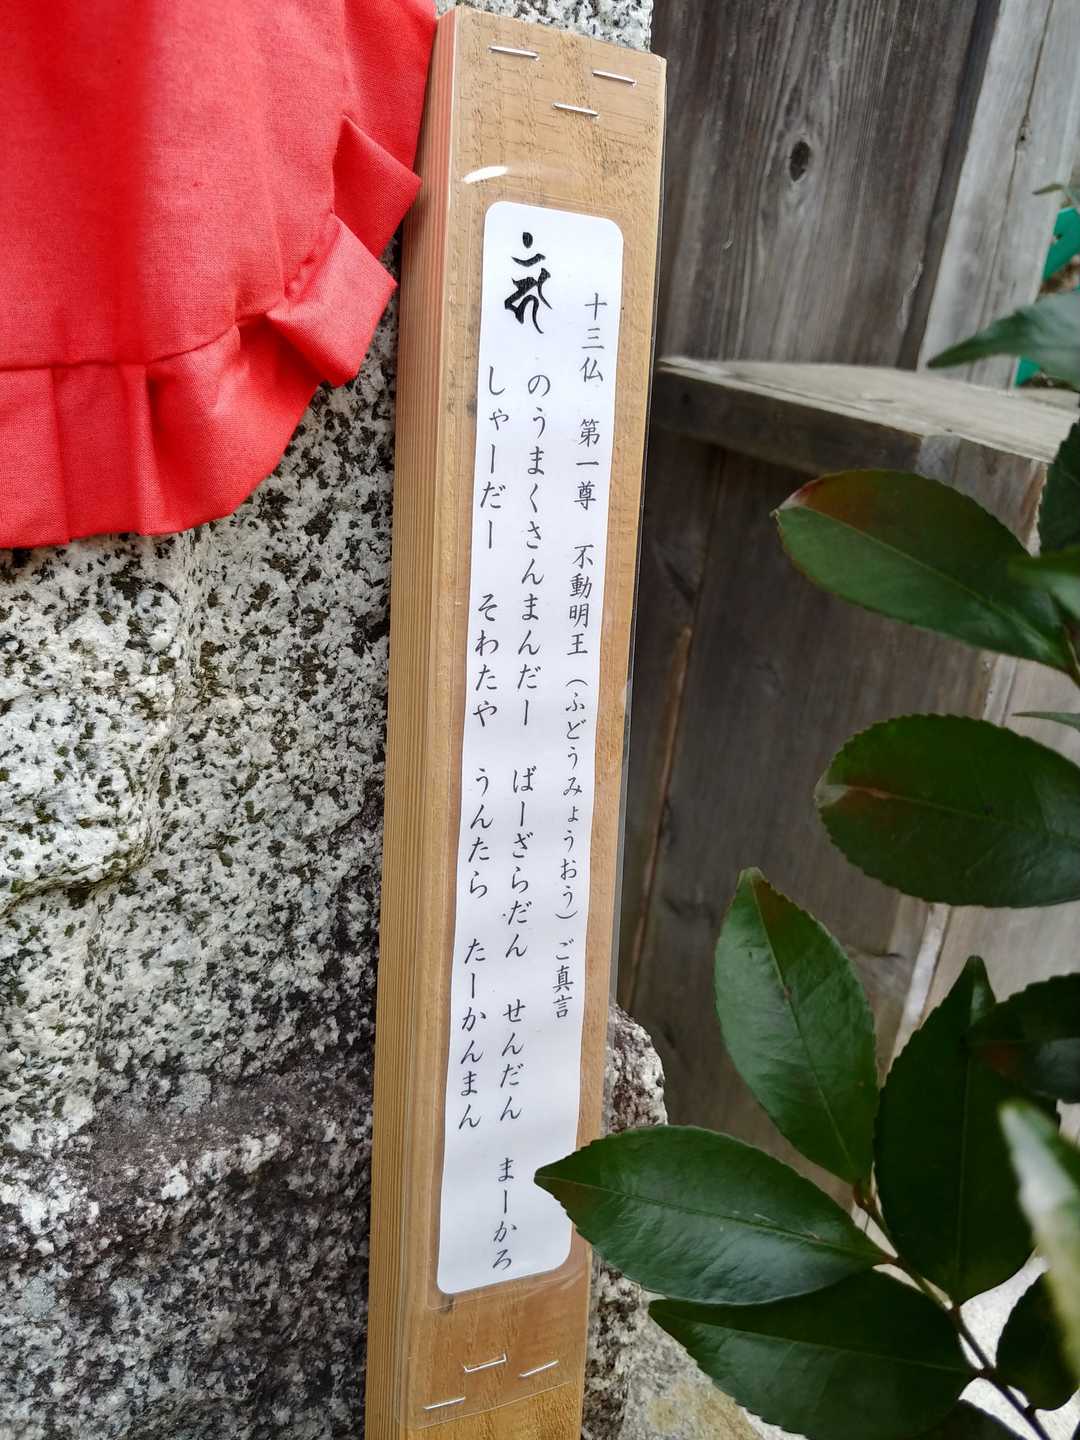 十三仏 第一尊 不動明王（ふどうみょうおう）ご真言
のうまくさんまんだー ばーざらだん せんだん まーかろ
しゃーだー そわたや うんたら たーかんまん